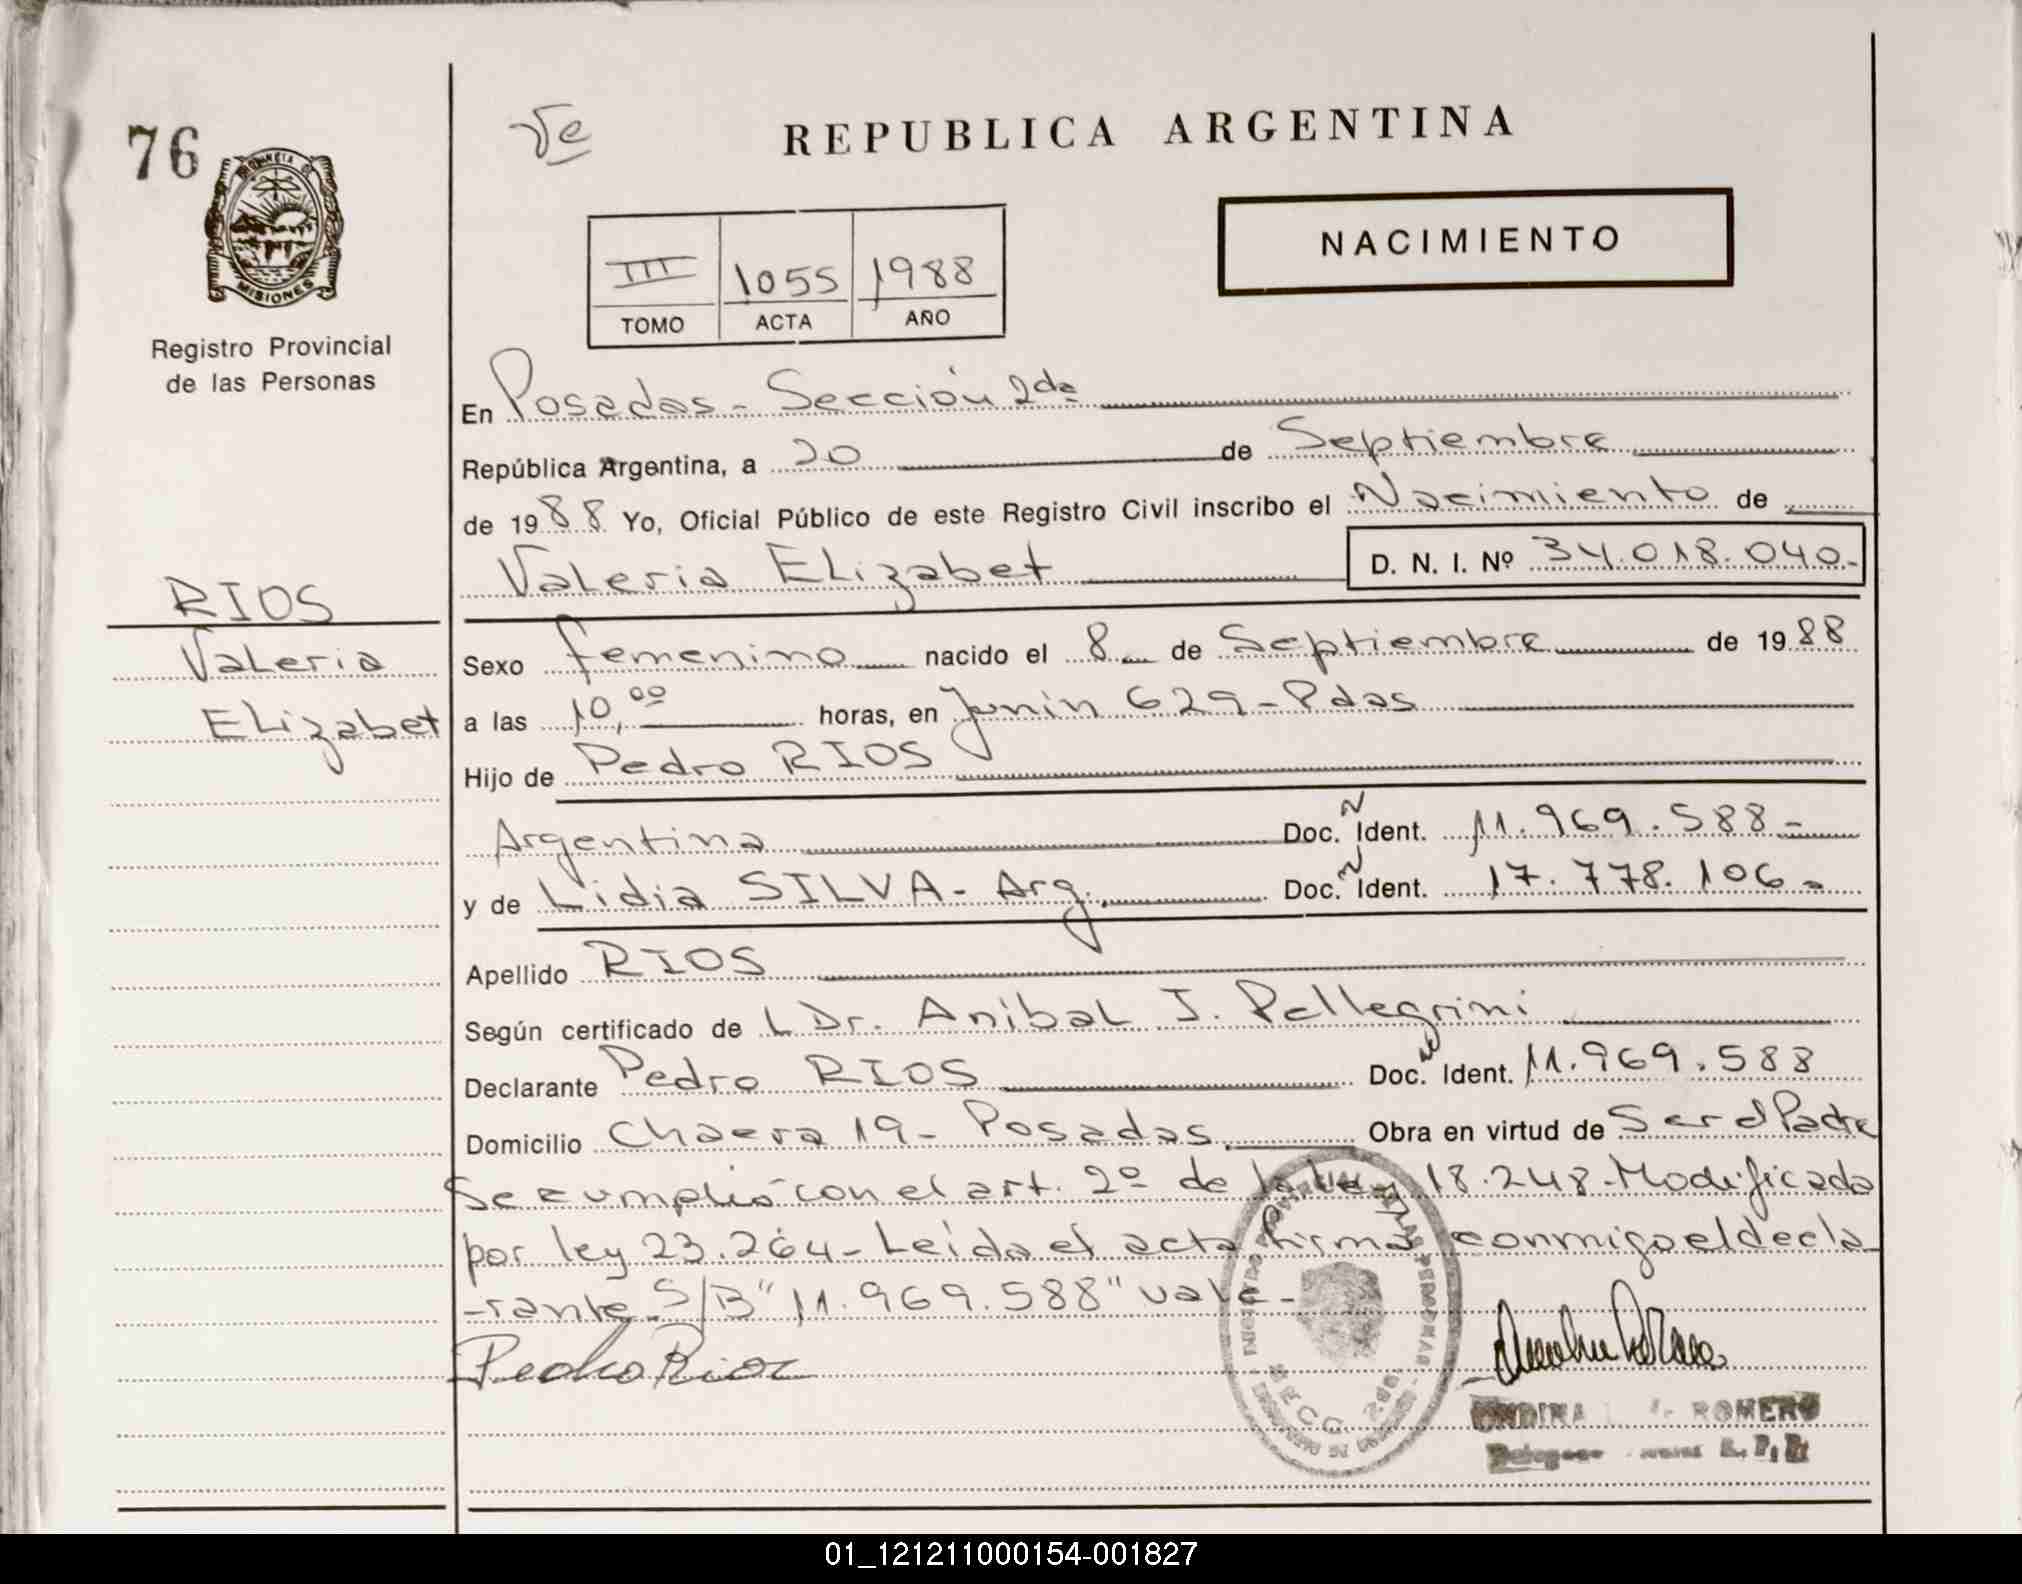 76
Ve
REPUBLICA ARGENTINA
NACIMIENTO
III 1055 1988
TOMO ACTA AÑO
MISIONES
Registro Provincial
de las Personas
En Posadas - Sección 2da
República Argentina, a 20 de Septiembre
de 1988 Yo, Oficial Público de este Registro Civil inscribo el Nacimiento de
Valeria ELizabet D. N. I. Nº 34.018.040.-
RIOS
Valeria
ELizabet
Sexo femenino nacido el 8 de Septiembre de 1988
a las 10,00 horas, en Junin 629 - Pdas
Hijo de Pedro RIOS
Argentina Doc. Ident. 11.969.588-
y de Lidia SILVA - Arg. Doc. Ident. 17.778.106-
Apellido RIOS
Según certificado de L Dr. Anibal J. Pellegrini
Declarante Pedro RIOS Doc. Ident. 11.969.588
Domicilio Chacra 19 - Posadas Obra en virtud de Ser el Padre
Se cumplió con el art. 2º de la ley 18.248 - Modificada
por ley 23.264 - Leída el acta firma conmigo el decla
-rante S/B "11.969.588" vale -
Pedro Rios
ROMERO
01_121211000154-001827